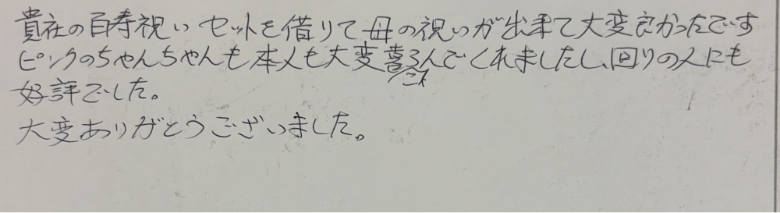 貴社の百寿祝いセットを借りて母の祝いが出来て大変良かったです
ピンクのちゃんちゃんも本人も大変喜んでくれましたし、回りの人にも
好評でした。
大変ありがとうございました。